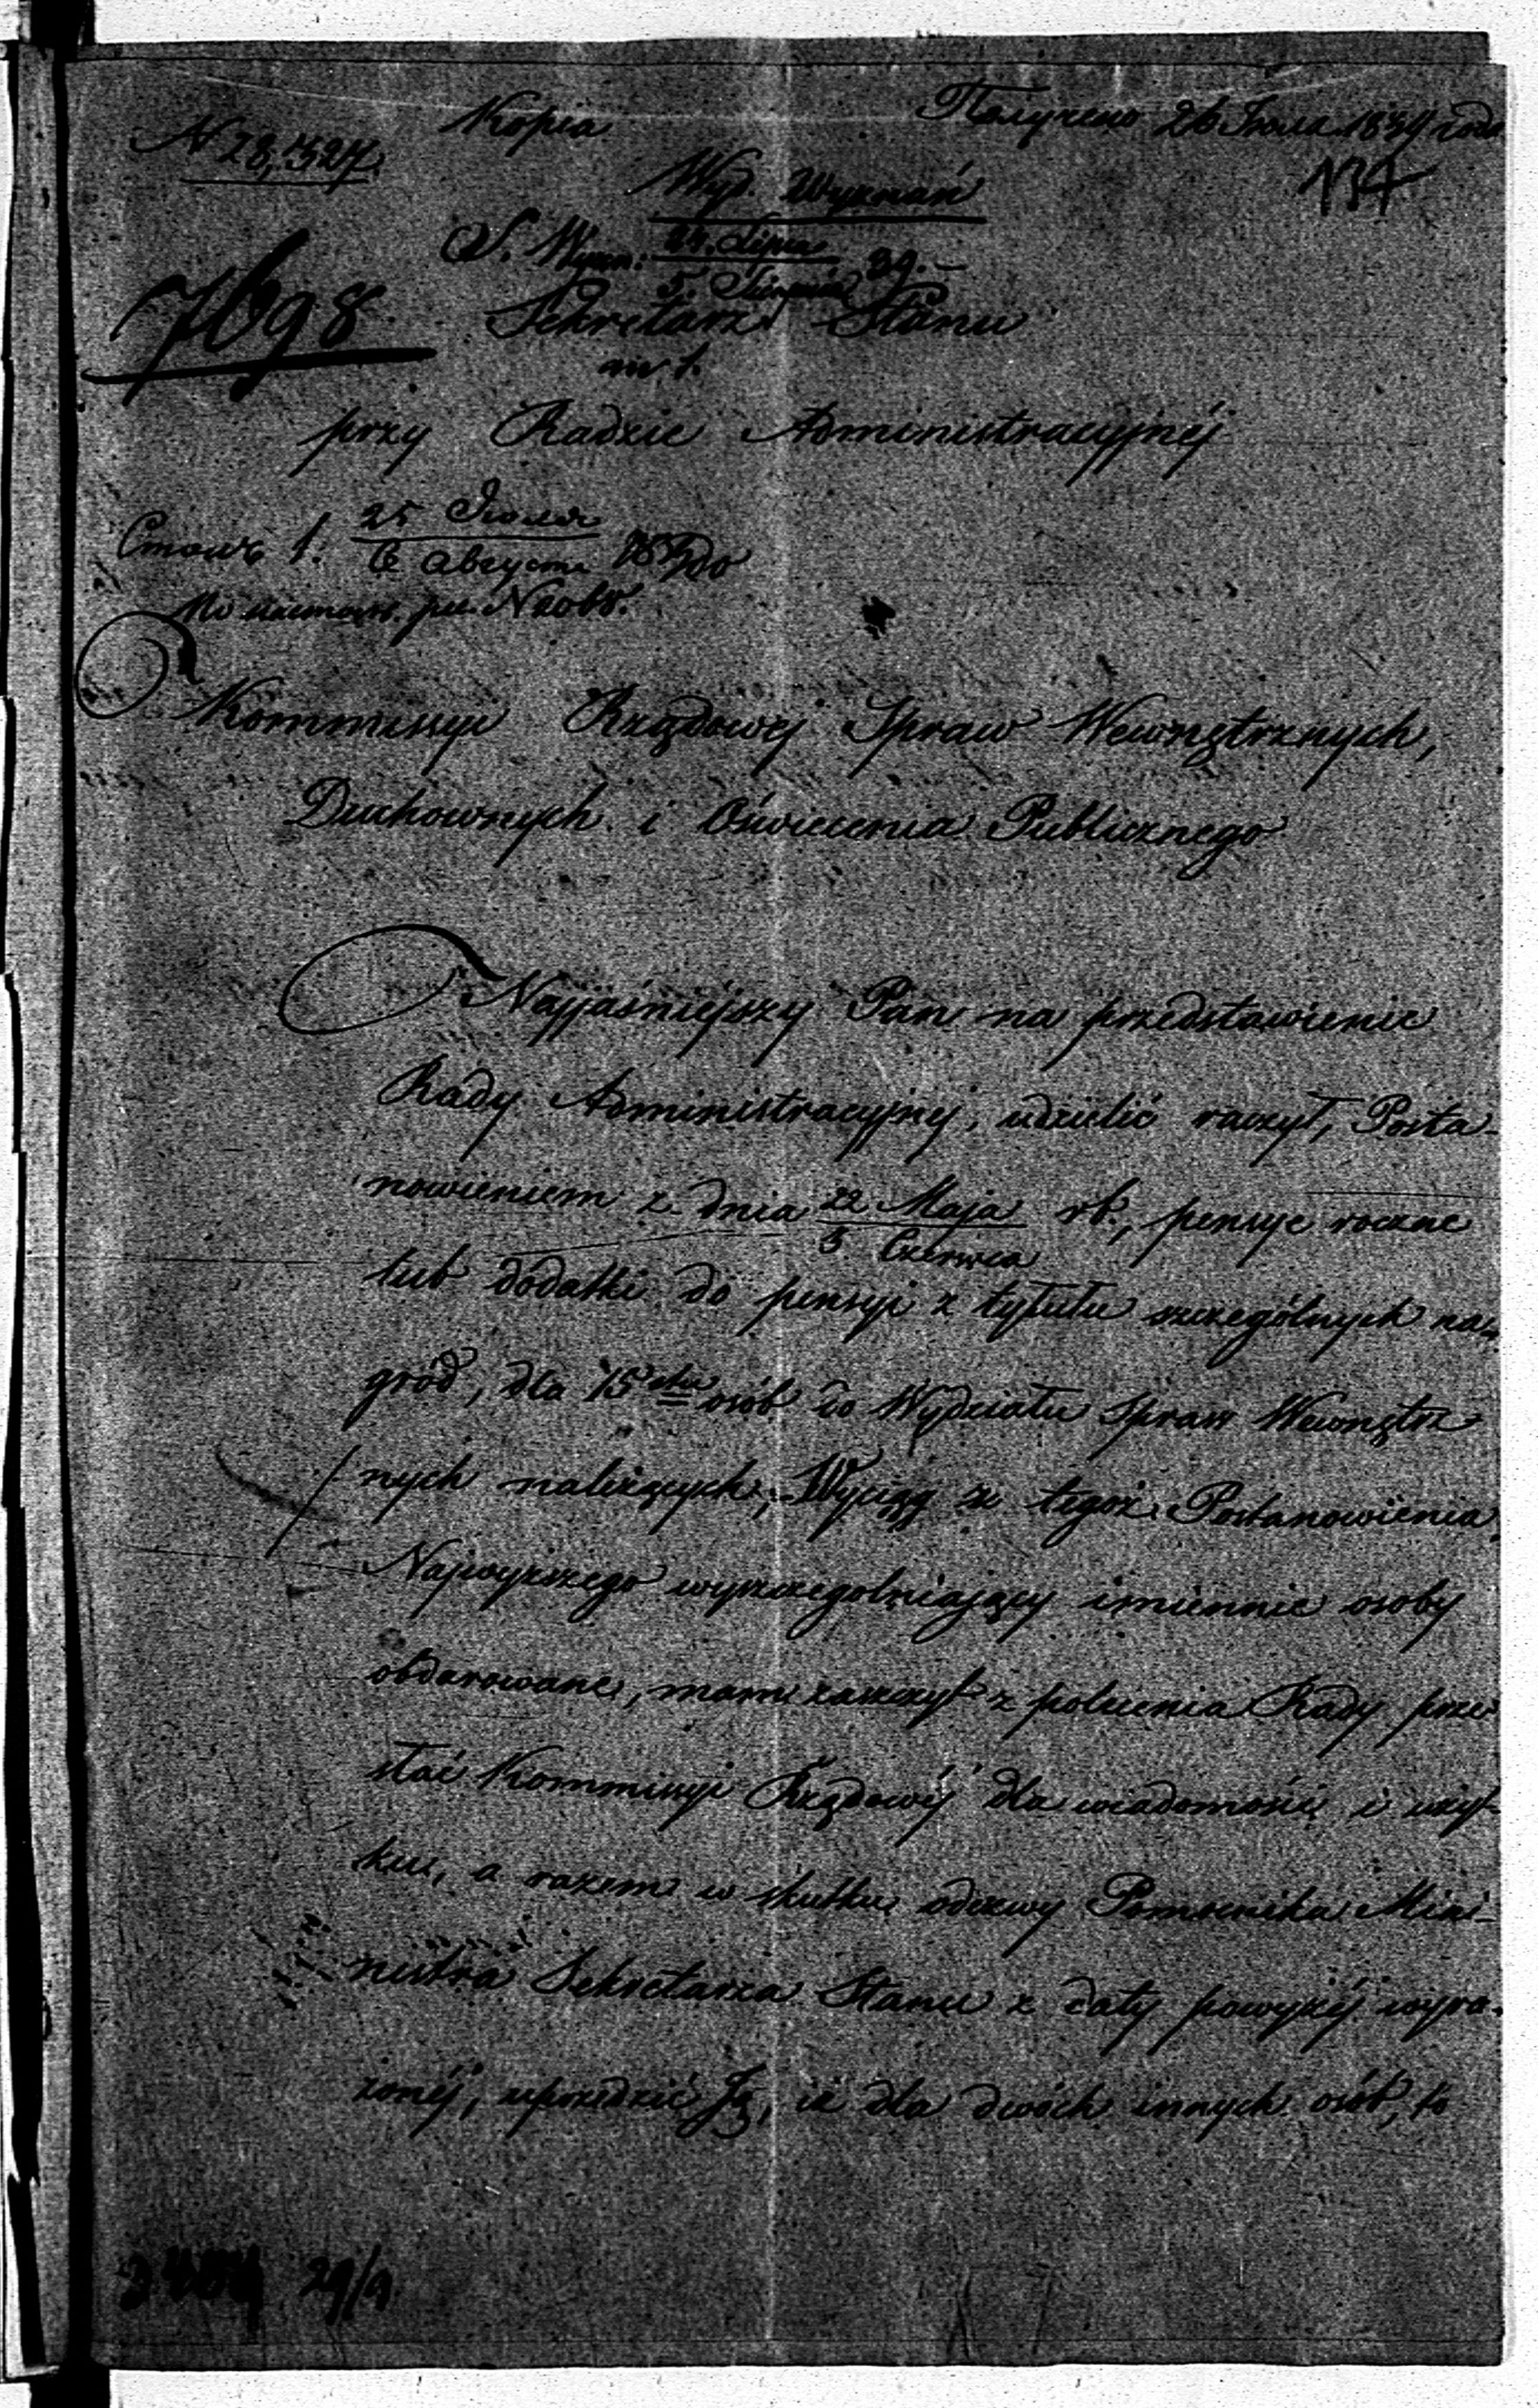 Kopia
Получено 26 Іюля 1839 года
N 28,327.
134
Wyd. Wyznań
24. Lipca
S. Wyzn. 39.
5. Sierpnia
7698
Sekretarz Stanu
nr 1.
przy Radzie Administracyjnéj
25 Іюля
6 Августа
Kommissyi Rządowéj Spraw Wewnętrznych,
Duchownych i Oświecenia Publicznego
Najjaśniejszy Pan na przedstawienie
Rady Administracyjnéj, udzielić raczył, Posta-
nowieniem z dnia 22 Maja rb., pensye roczne
3 Czerwca
lub dodatki do pensyi z tytułu szczególnych na-
gród, dla 15stu osób do Wydziału Spraw Wewnętrz
nych należących; Wyciąg ze tegoż Postanowienia
Najwyższego wyszczegolniający imiennie osoby
obdarowane, mam zaszczyt z polecenia Rady prze
słać Kommissyi Rządowéj dla wiadomości i użyt-
ku, a razem w skutku odezwy Pomocnika Mini-
nistra Sekretarza Stanu z daty powyżéj wyra-
żonéj, uprzedzić Ją, iż dla dwóch innych osób, to
29/9.